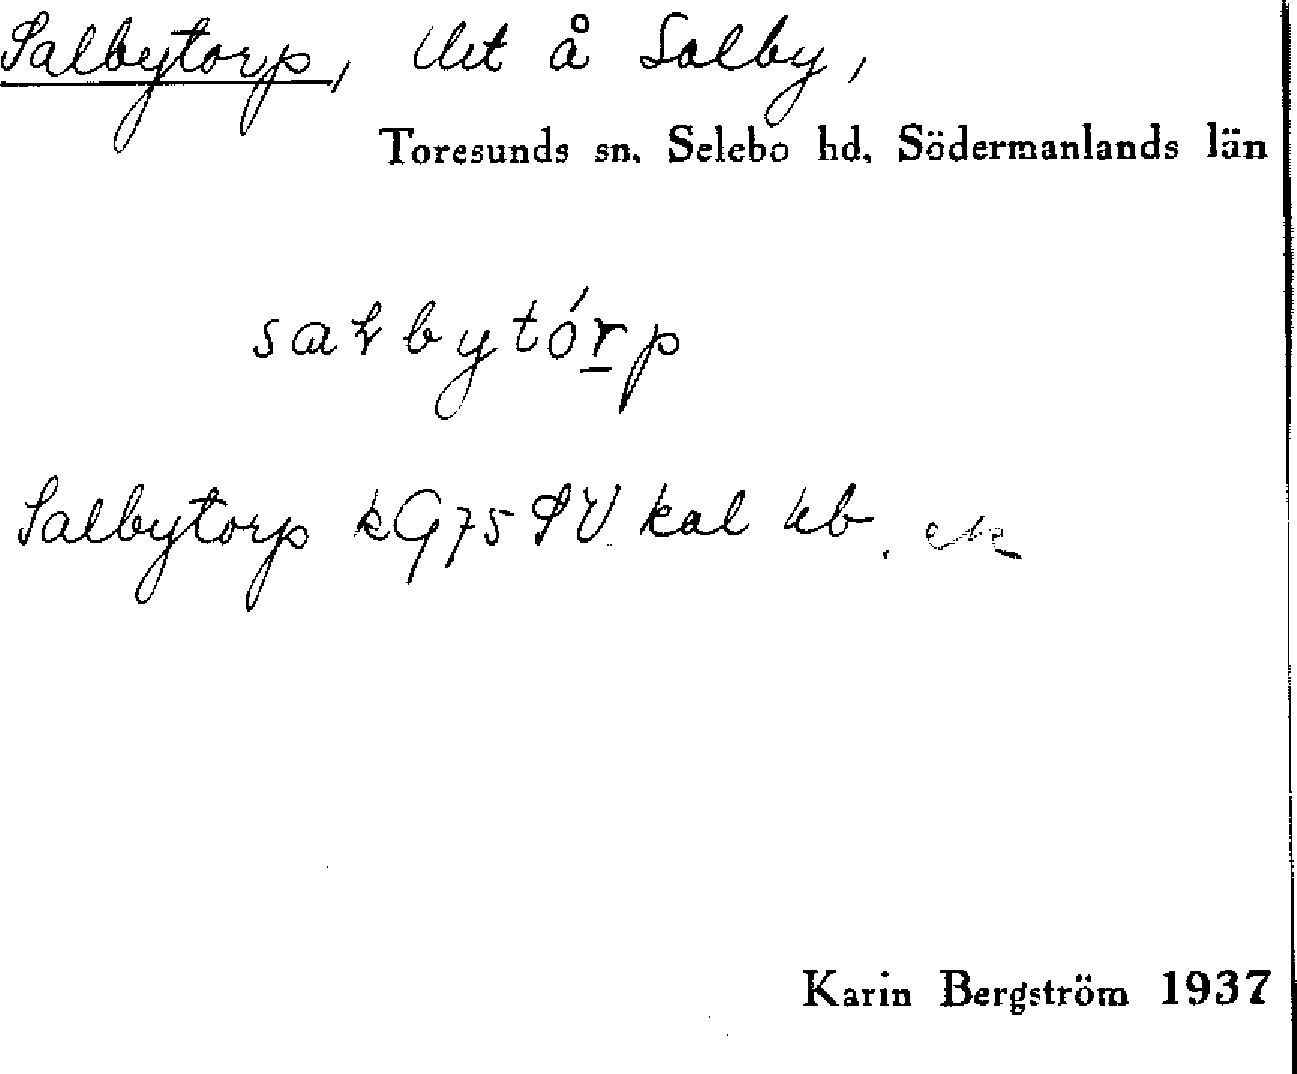 Salbytorp, lht å Salby,
Toresunds sn. Selebo hd. Södermanlands län
saɫbytórp
Salbytorp kG75 SV kal kb.
Karin Bergström 1937